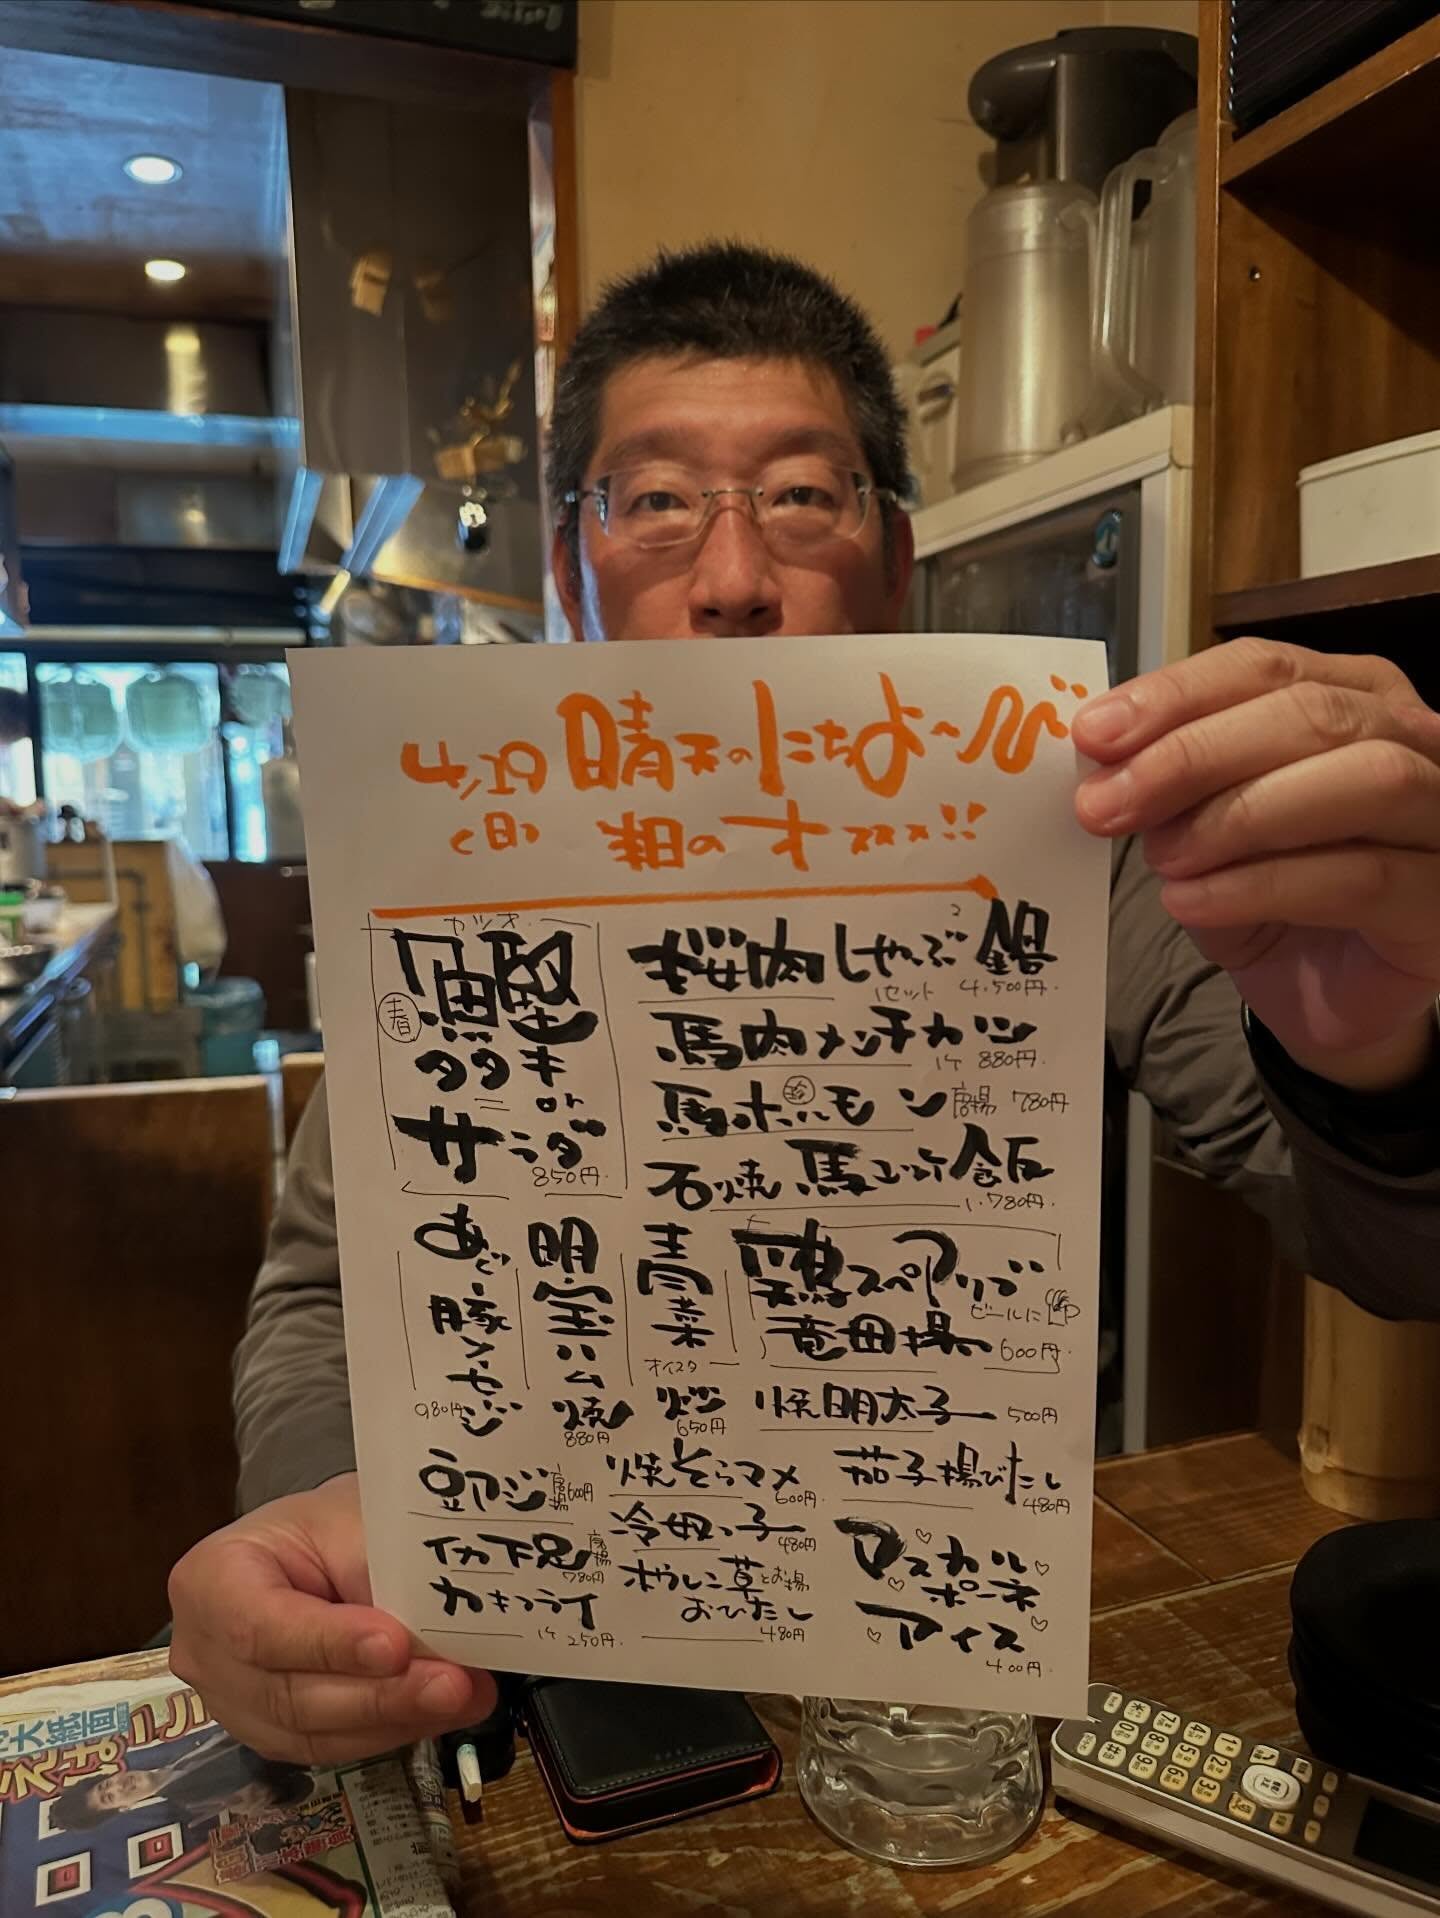 4/19 晴天のにちよ〜び
(日) 粗のオススメ!!
カツオ
春
鰹
タタキ
or
サラダ
850円
桜肉しゃぶ鍋
1セット 4.500円
馬肉メンチカツ
1ケ 880円
馬ホルモン 唐揚 780円
珍
石焼 馬ユッケ飯
1.780円
あぐー豚ソーセージ
980円
明宝ハム焼
880円
青菜
オイスター
炒
650円
鶏スペアリブ
ビールに
竜田揚
600円
焼明太子 500円
豆アジ 唐揚 600円
焼そらマメ
600円
茄子揚びたし
480円
イカ下足 唐揚
780円
冷やっ子
480円
カキフライ
1ケ 250円
ホウレン草とお揚
おひたし
480円
マスカルポーネ
アイス
400円
大紙面